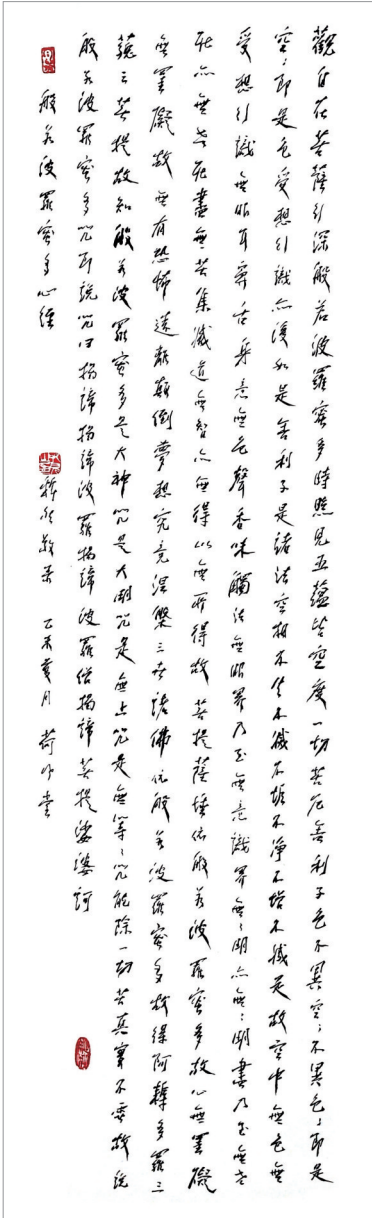 觀自在菩薩行深般若波羅蜜多時照見五蘊皆空度一切苦厄舍利子色不異空々不異色々即是
空々即是色受想行識亦復如是舍利子是諸法空相不生不滅不垢不淨不增不減是故空中無色無
受想行識無眼耳鼻舌身意無色聲香味觸法無眼界乃至無意識界無々明亦無々明盡乃至無老
死亦無老死盡無苦集滅道無智亦無得以無所得故菩提薩埵依般若波羅蜜多故心無罣礙
無罣礙故無有恐怖遠離顛倒夢想究竟涅槃三世諸佛依般若波羅蜜多故得阿耨多羅三
藐三菩提故知般若波羅蜜多是大神咒是大明咒是無上咒是無等々咒能除一切苦真實不虛故說
般若波羅蜜多咒即說咒曰揭諦揭諦波羅揭諦波羅僧揭諦菩提娑婆訶
般若波羅蜜多心經 敬 乙未夏月 荷 堂